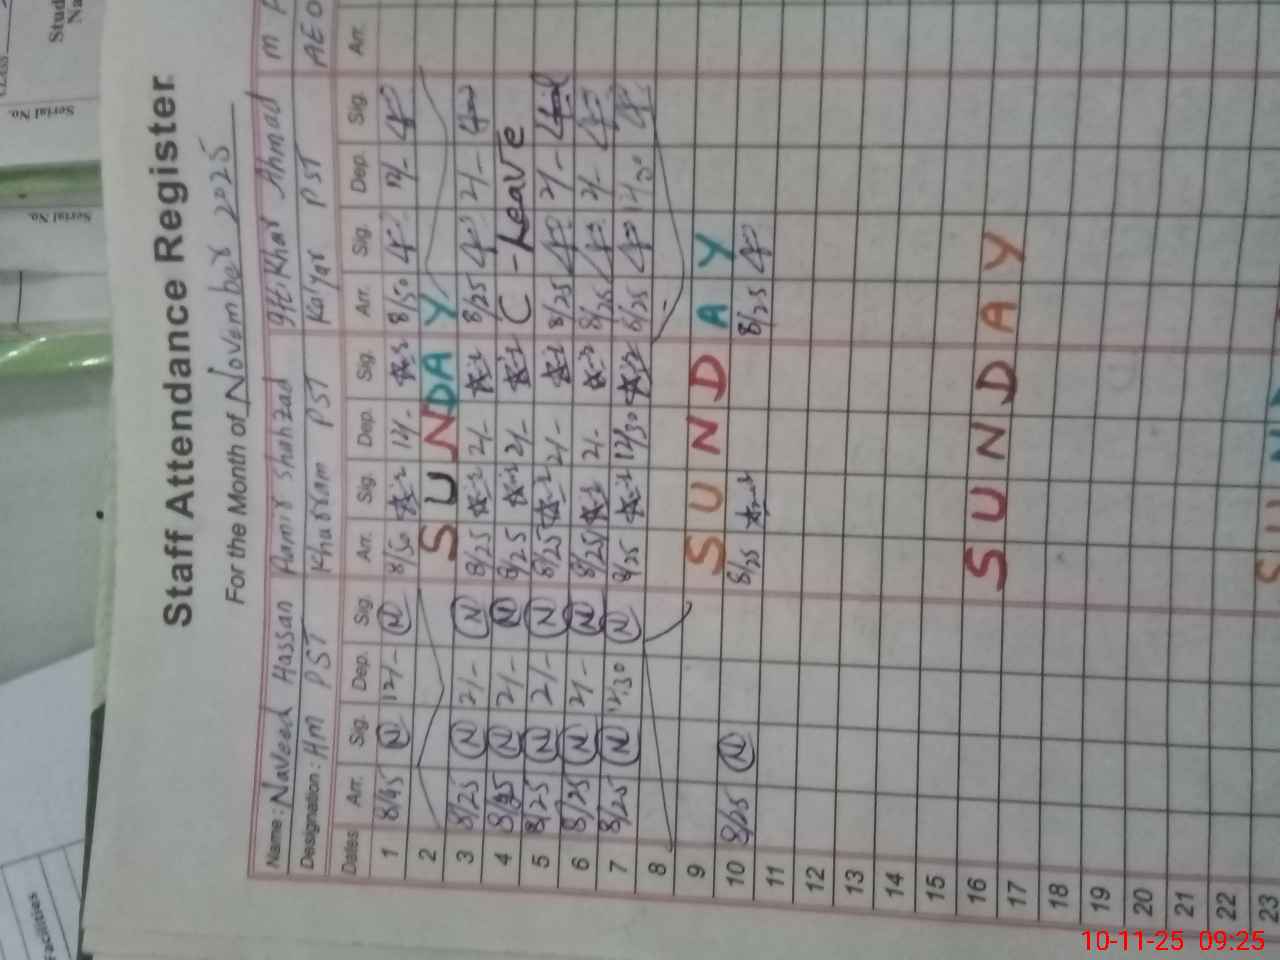 Staff Attendance Register
For the Month of November 2025
Name: Naveed Hassan Aamir Shahzad Iftikhar Ahmad M
Designation: HM PST Khurram PST Kalyar PST AEO
Dates Arr. Sig. Dep. Sig. Arr. Sig. Dep. Sig. Arr. Sig. Dep. Sig. Arr.
1 8/45 N 12/- N 8/50 12/- 8/50 12/-
2 SUNDAY
3 8/25 N 2/- N 8/25 2/- 8/25 2/-
4 8/25 N 2/- N 8/25 2/- C - Leave
5 8/25 N 2/- N 8/25 2/- 8/25 2/-
6 8/25 N 2/- N 8/25 2/- 8/25 2/-
7 8/25 N 12/30 N 8/25 12/30 8/25 12/30
8
9 SUNDAY
10 8/25 N 8/25 8/25
11
12
13
14
15
16 SUNDAY
17
18
19
20
21
22
23
Serial No.
Serial No.
Facilities
10-11-25 09:25